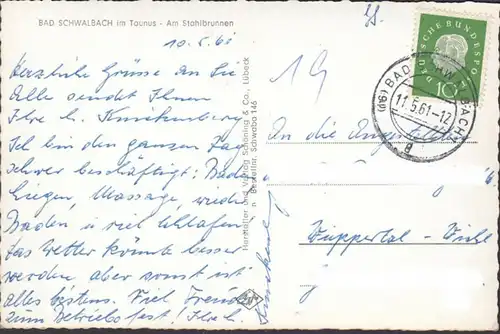 BAD SCHWALBACH im Taunus - Am Stahlbrunnen
Herzliche Grüsse an Sie
Alle sendet Ihnen
Ihre h.
Ich bin den ganzen Tag
schwer beschäftigt: Baden
Liegen, Massage, wieder
Baden u viel schlafen
das Wetter könnte besser
werden aber sonst ist
alles bestens. Viel Freude
zum Betriebsfest! Ihre h.
Hersteller und Verlag Schöning & Co., Lübeck
Bestellnr. Schwaba 146
19
DEUTSCHE BUNDESPOST
10
(16) BAD SCHWALBACH
11.5.61-12
a
An die
Wuppertal-